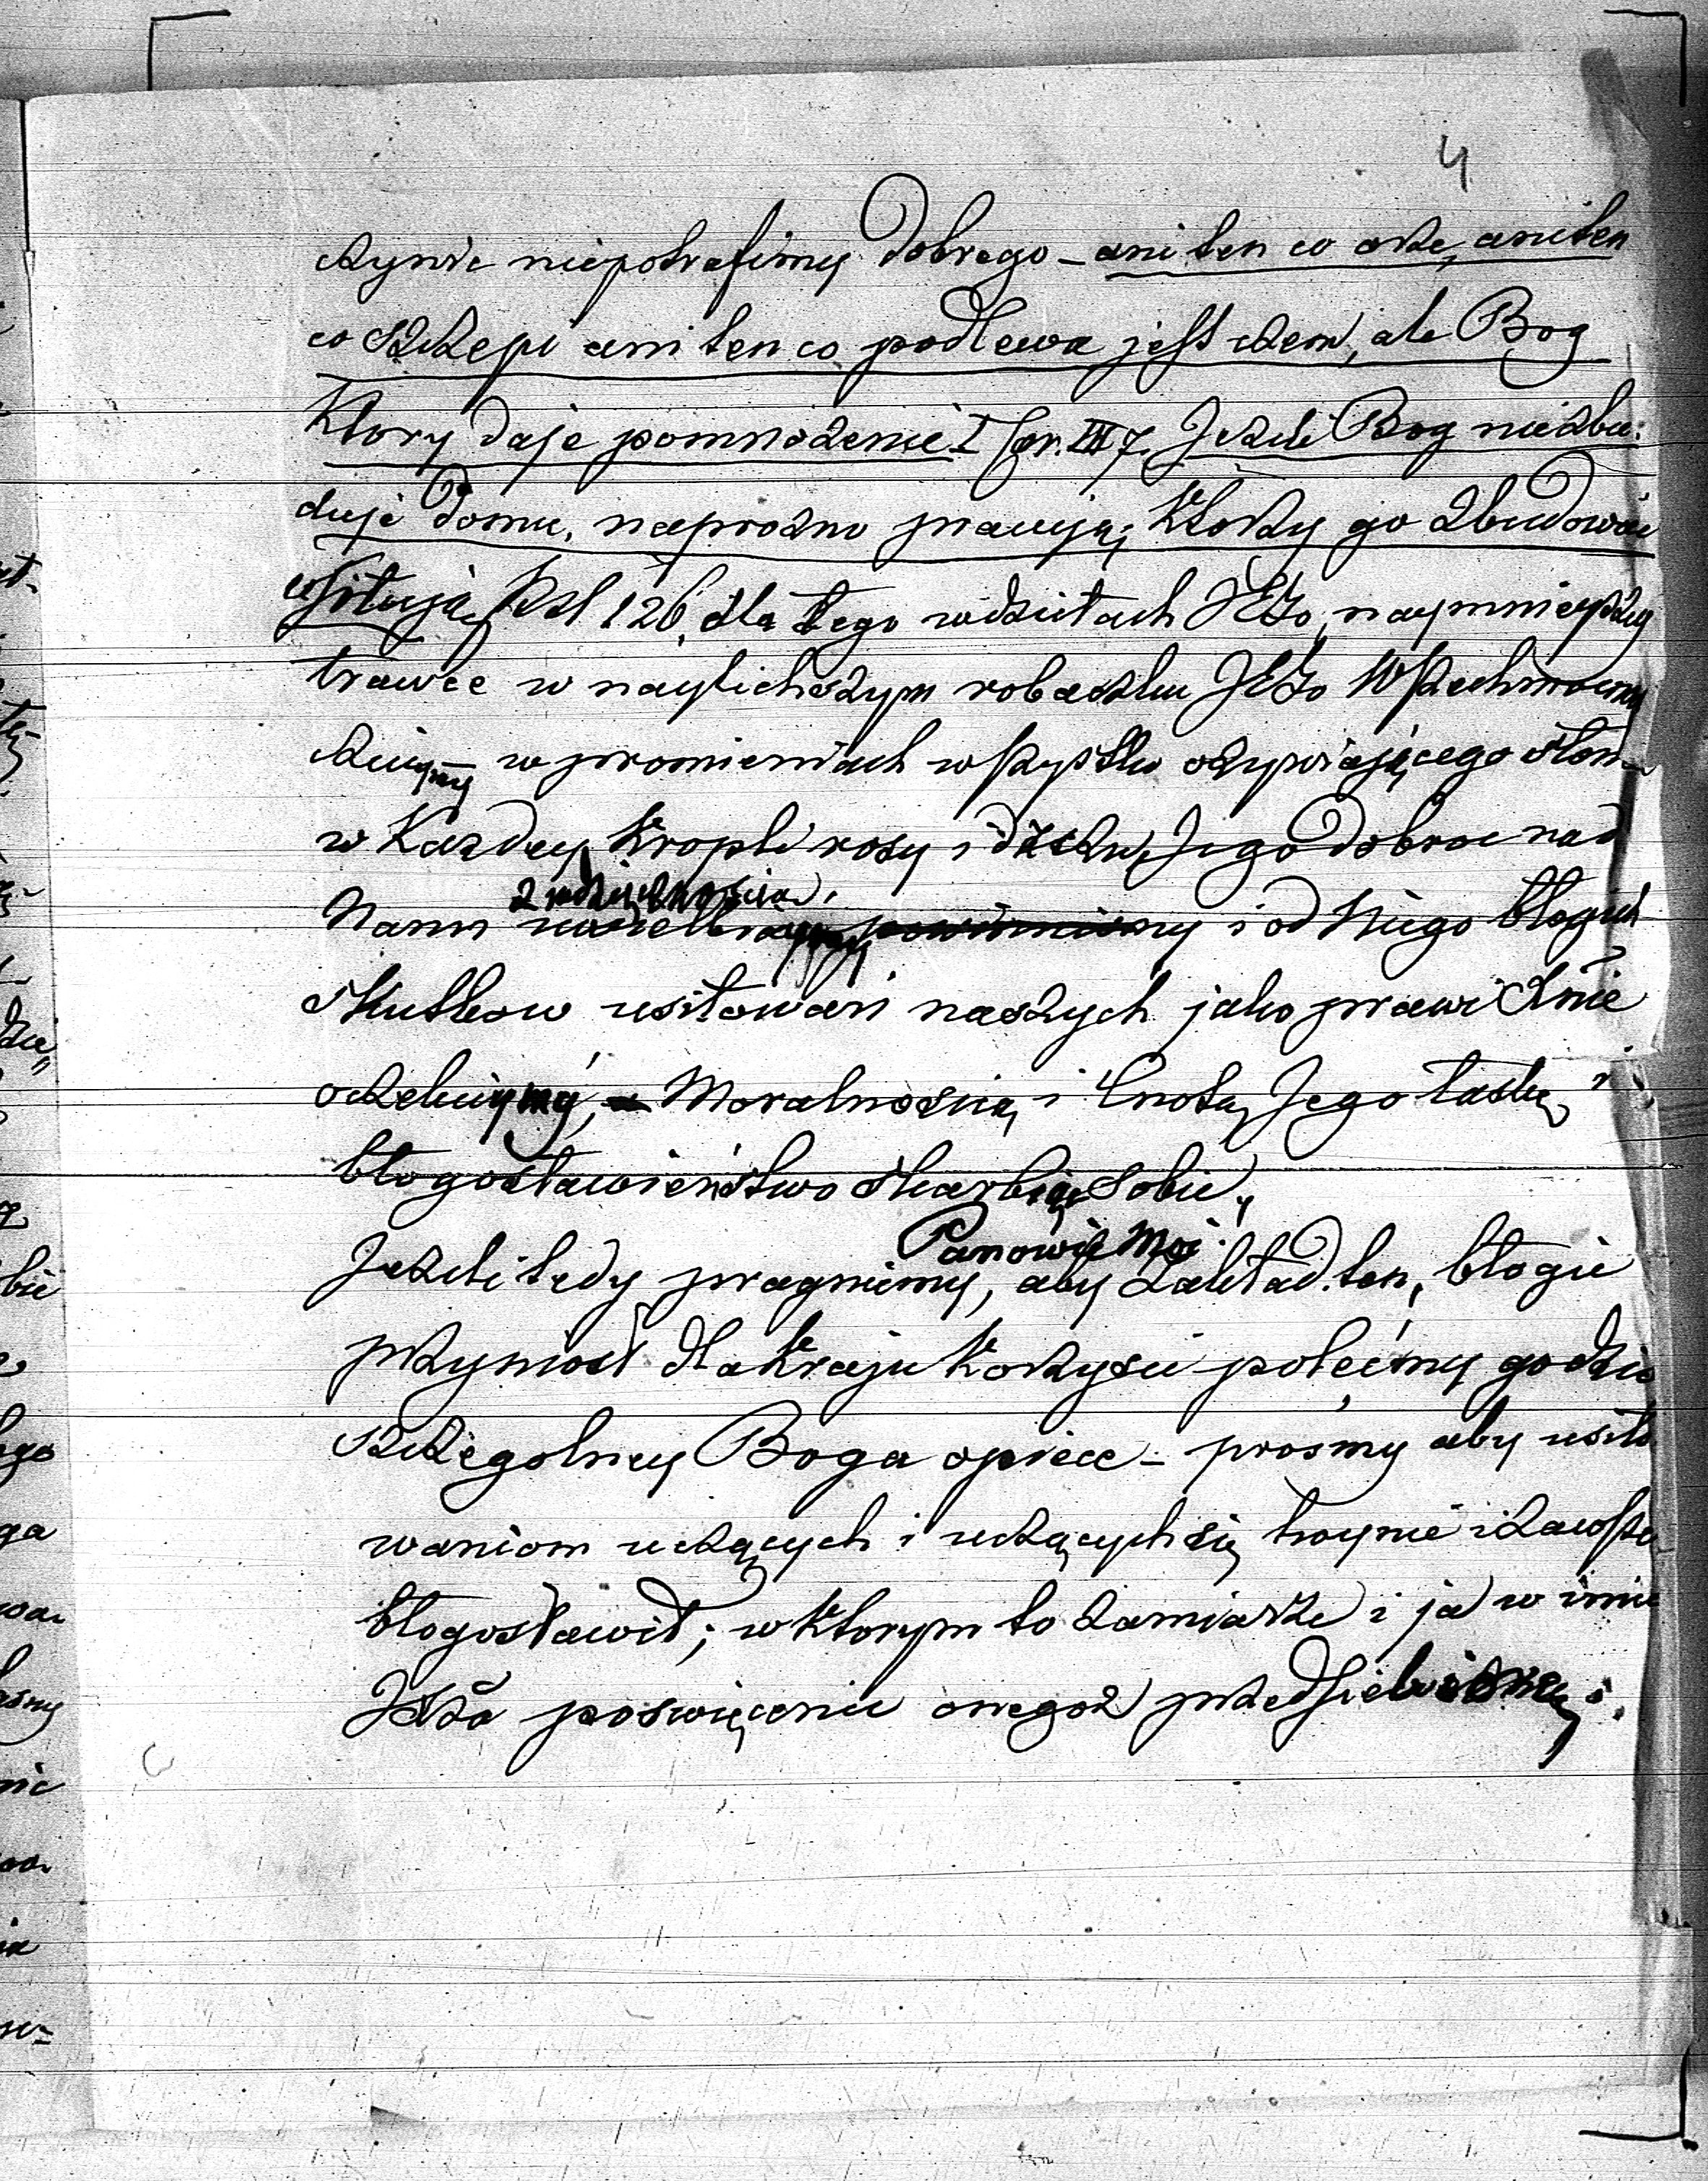 4
czynic niepotrafimy dobrego – ani ten co orze, ani ten
co szczepi ani ten co podlewa jest czem, ale Bog
Ktory daje pomnożenie I Cor. III 7. Jezeli Bog niezbu:
duje Domu, naprozno pracują, Ktorzy go zbudować
usiłują Psal 126, dla tego w dziełach JEGo, naymnieyszey
trawce w naylichszym robaczku JEGo Wszechmocność
czcijmy – w promieniach wszystko ozywiającego słon
w Kazdey Kropli rosy i dżdżu, Jego dobroc nad
Nami z wdzięcznoscią uwielbiaymy powinnismy i od Niego błogich
skutkow usiłowań naszych jako prawi
oczekuiymy, Moralnoscią i Cnotą Jego łaskę i
błogosławieństwo skarbiąc sobie.
Jeżeli tedy pragniemy, Panowie Moi aby Zakład ten, błogie
przyniosł dla Kraju Korzysci polećmy go dzis
szczegolney Boga opiece – prosmy aby usiło
waniom uczących i uczących się hoynie i zawsze
błogosławił; w Ktorym to zamiarze i ja w imie
JEGo poswięcenie onegoż przedsiewezmę.